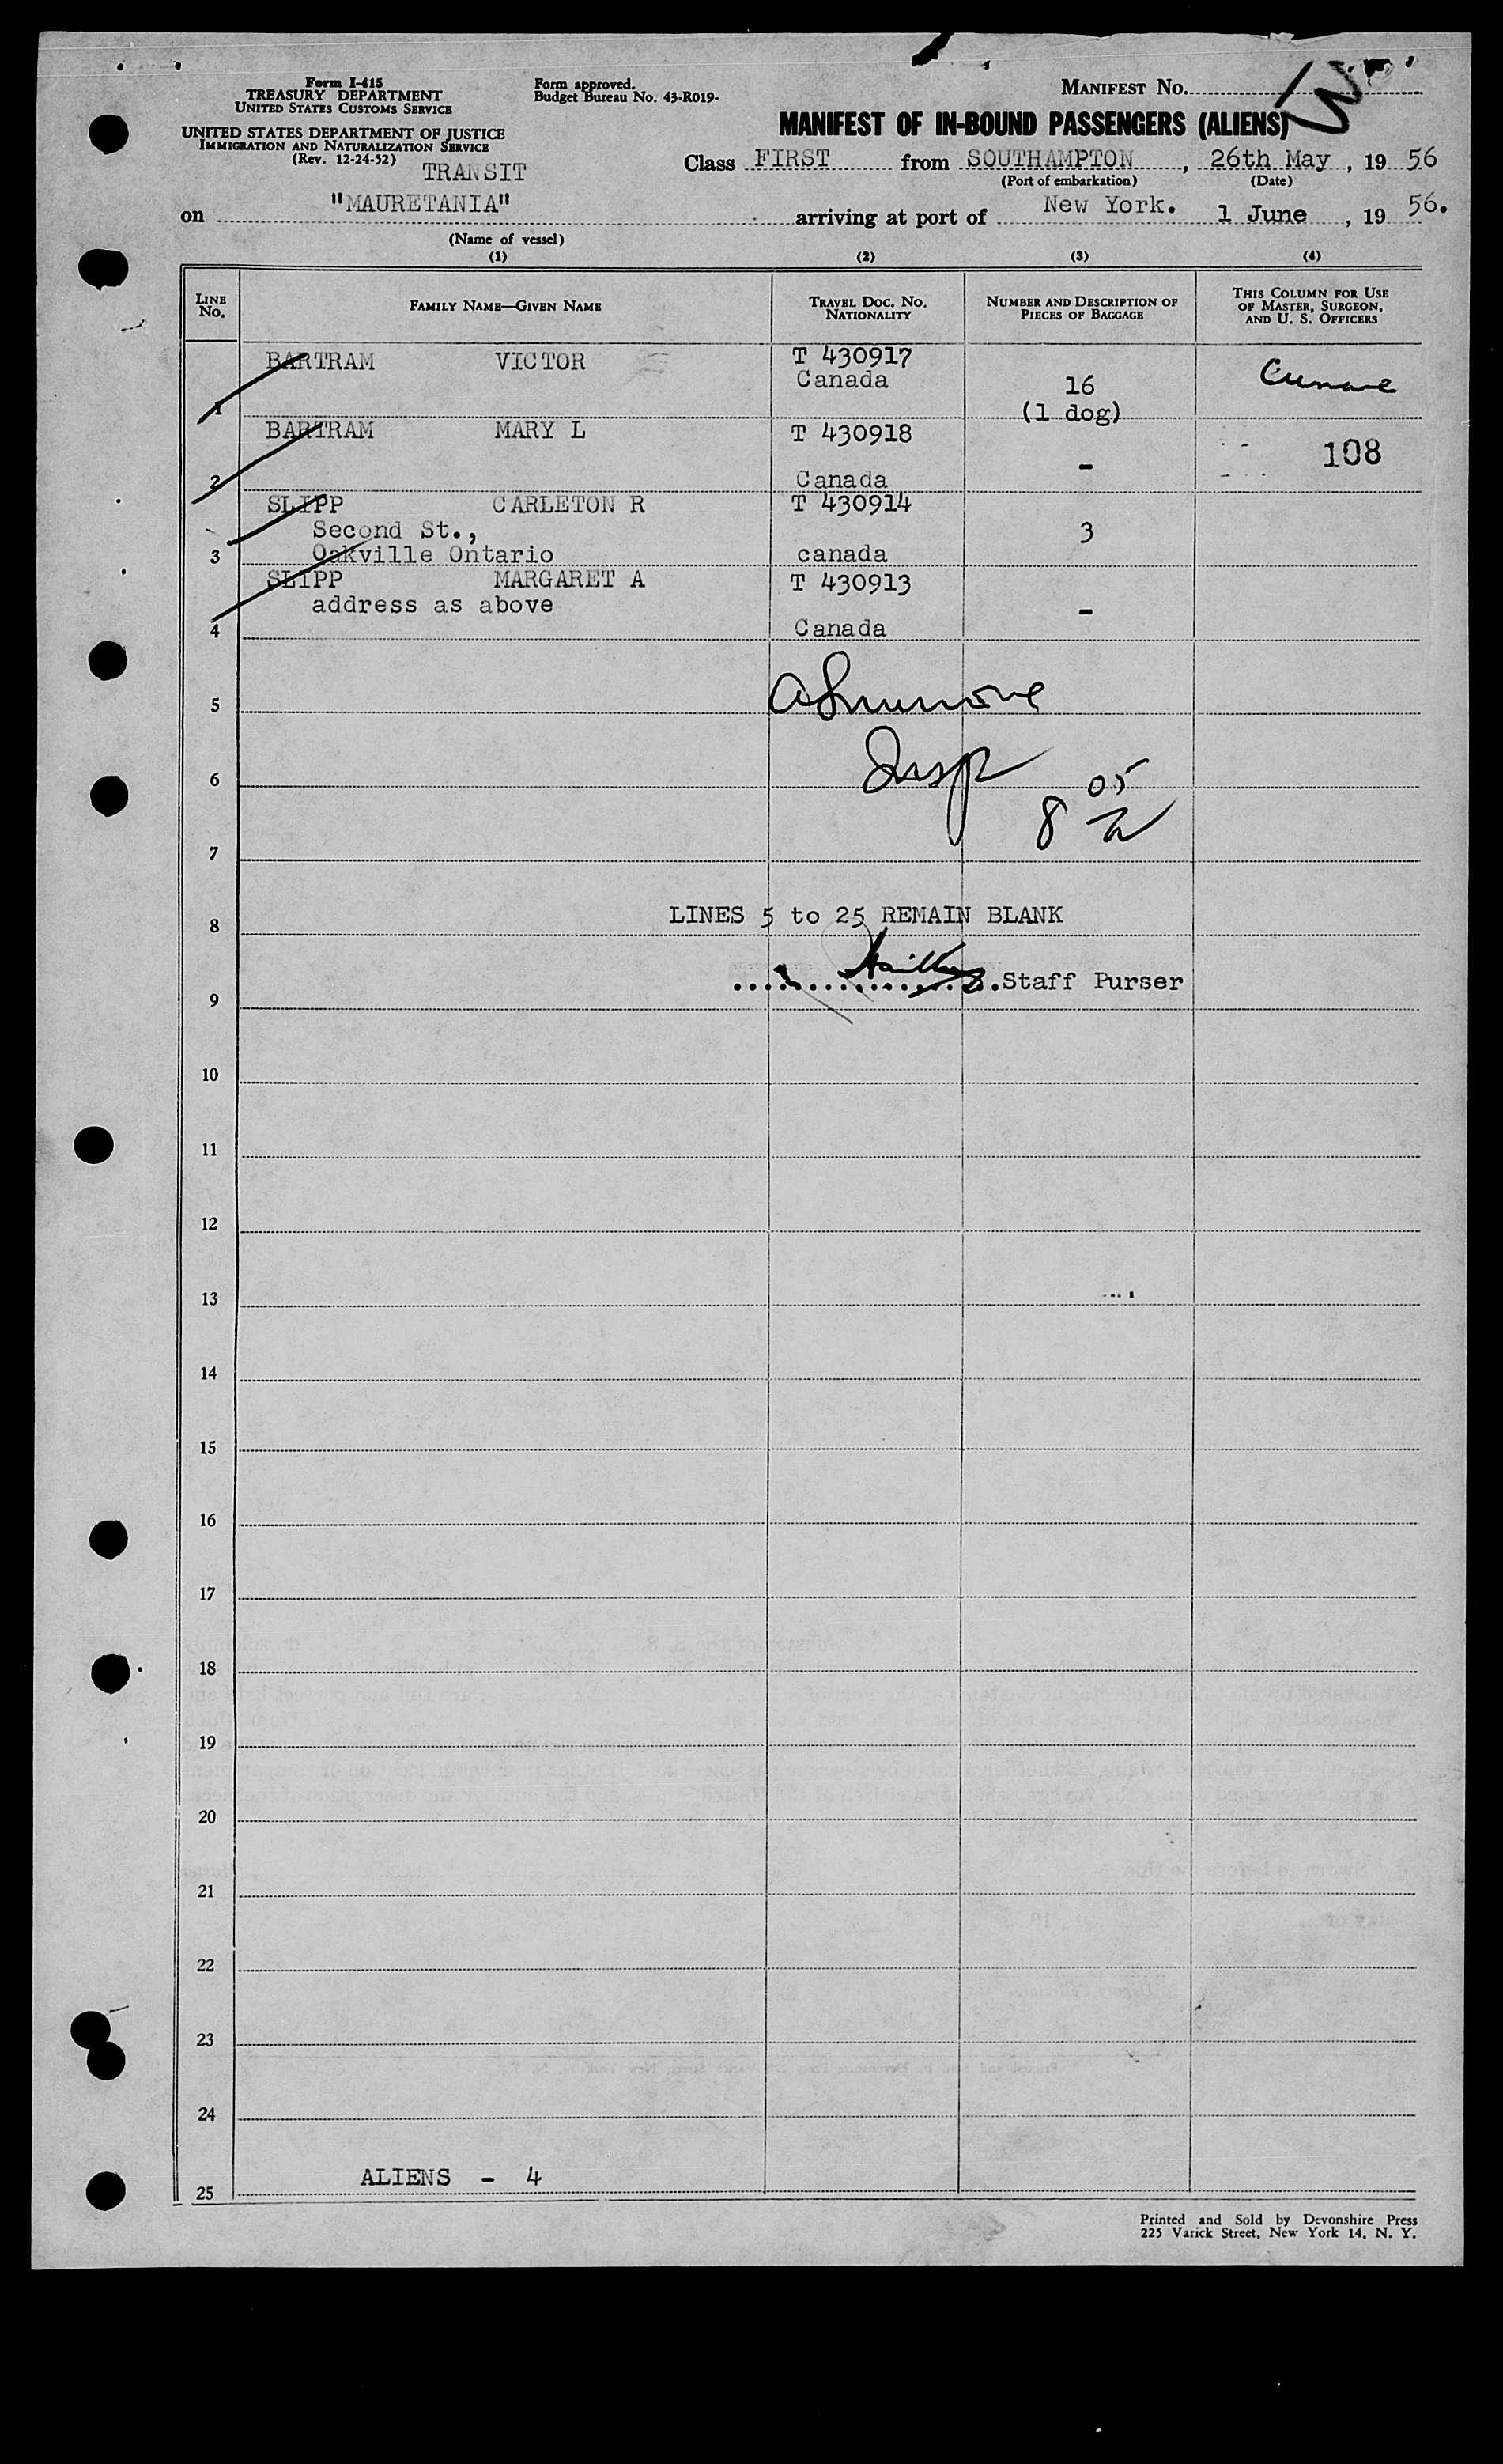 Form I-415
TREASURY DEPARTMENT
UNITED STATES CUSTOMS SERVICE
UNITED STATES DEPARTMENT OF JUSTICE
IMMIGRATION AND NATURALIZATION SERVICE
(Rev. 12-24-52)
Form approved.
Budget Bureau No. 43-R019-
MANIFEST NO.
MANIFEST OF IN-BOUND PASSENGERS (ALIENS)
TRANSIT
Class FIRST from SOUTHAMPTON, 26th May, 19 56
(Port of embarkation) (Date)
on "MAURETANIA" arriving at port of New York. 1 June, 19 56.
(Name of vessel)
(1) (2) (3) (4)
LINE NO.
FAMILY NAME—GIVEN NAME
TRAVEL DOC. NO.
NATIONALITY
NUMBER AND DESCRIPTION OF
PIECES OF BAGGAGE
THIS COLUMN FOR USE
OF MASTER, SURGEON,
AND U. S. OFFICERS
BARTRAM VICTOR T 430917
Canada 16
1 (1 dog)
BARTRAM MARY L T 430918 108
-
2 Canada
SLIPP CARLETON R T 430914
Second St., 3
3 Oakville Ontario canada
SLIPP MARGARET A T 430913
address as above -
4 Canada
5
6 Insp 05
7 8
LINES 5 to 25 REMAIN BLANK
8
9 Staff Purser
10
11
12
13
14
15
16
17
18
19
20
21
22
23
24
ALIENS - 4
25
Printed and Sold by Devonshire Press
225 Varick Street, New York 14, N. Y.